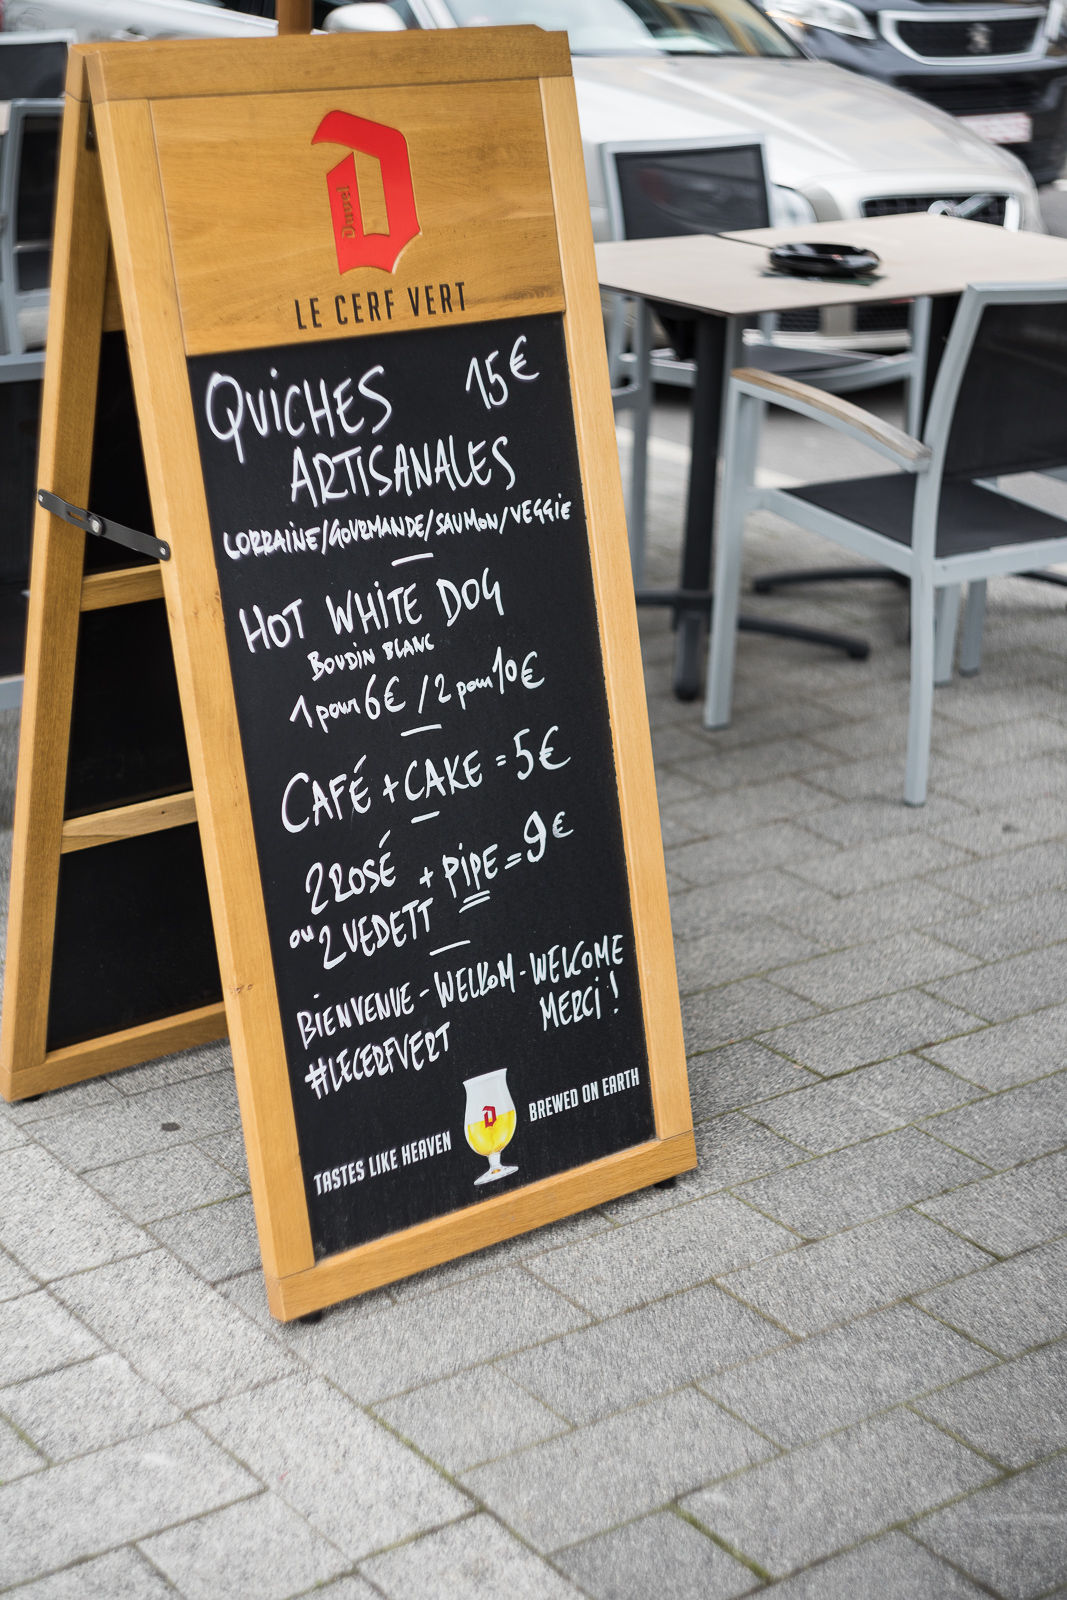 Duvel
LE CERF VERT
QUICHES 15€
ARTISANALES
LORRAINE/GOURMANDE/SAUMON/VEGGIE
HOT WHITE DOG
BOUDIN BLANC
1 pour 6€ / 2 pour 10€
CAFÉ + CAKE = 5€
2 ROSÉ + PIPE = 9€
ou 2 VEDETT
BIENVENUE - WELKOM - WELCOME
MERCI !
#LECERFVERT
TASTES LIKE HEAVEN BREWED ON EARTH